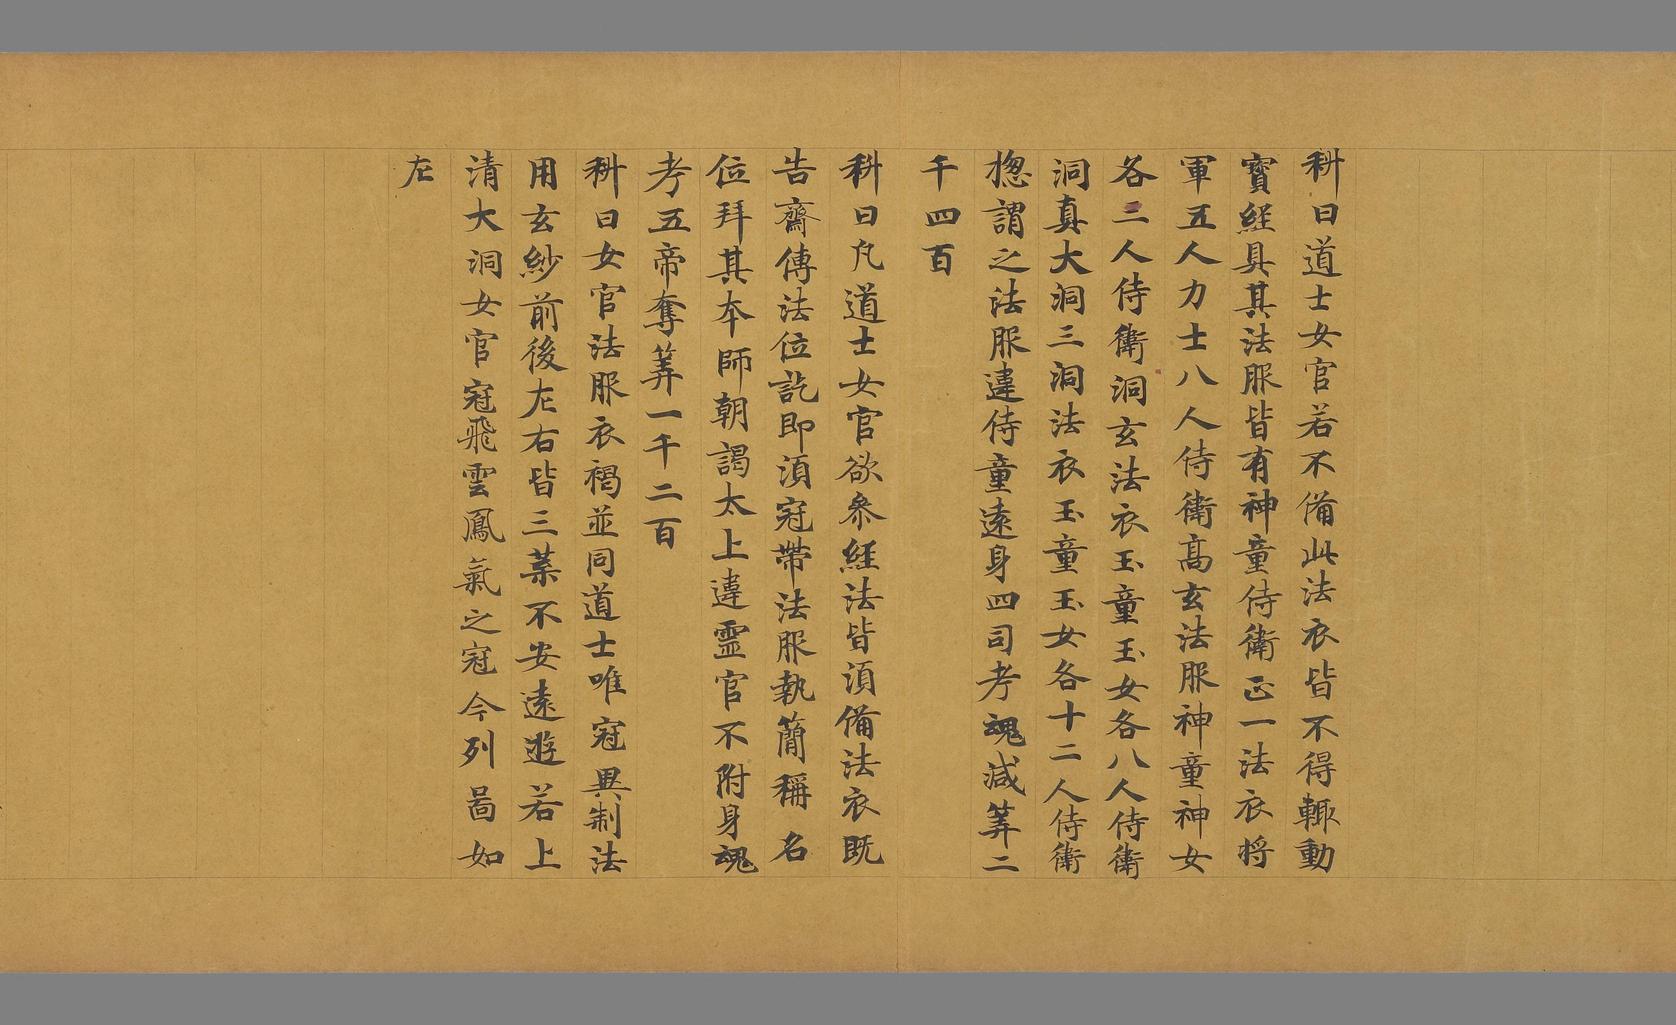 科曰道士女官若不備此法衣皆不得輙動
寳經具其法服皆有神童侍衛正一法衣將
軍五人力士八人侍衛髙玄法服神童神女
各二人侍衛洞玄法衣玉童玉女各八人侍衛
洞真大洞三洞法衣玉童玉女各十二人侍衛
揔謂之法服違侍童遠身四司考魂減筭二
千四百
科曰凢道士女官欲叅經法皆須備法衣既
告齋傳法位訖即須冠帶法服執簡稱名
位拜其本師朝謁太上違靈官不附身魂
考五帝奪筭一千二百
科曰女官法服衣褐並同道士唯冠異制法
用玄紗前後左右皆三葉不安遠遊若上
清大洞女官冠飛雲鳳氣之冠今列啚如
左